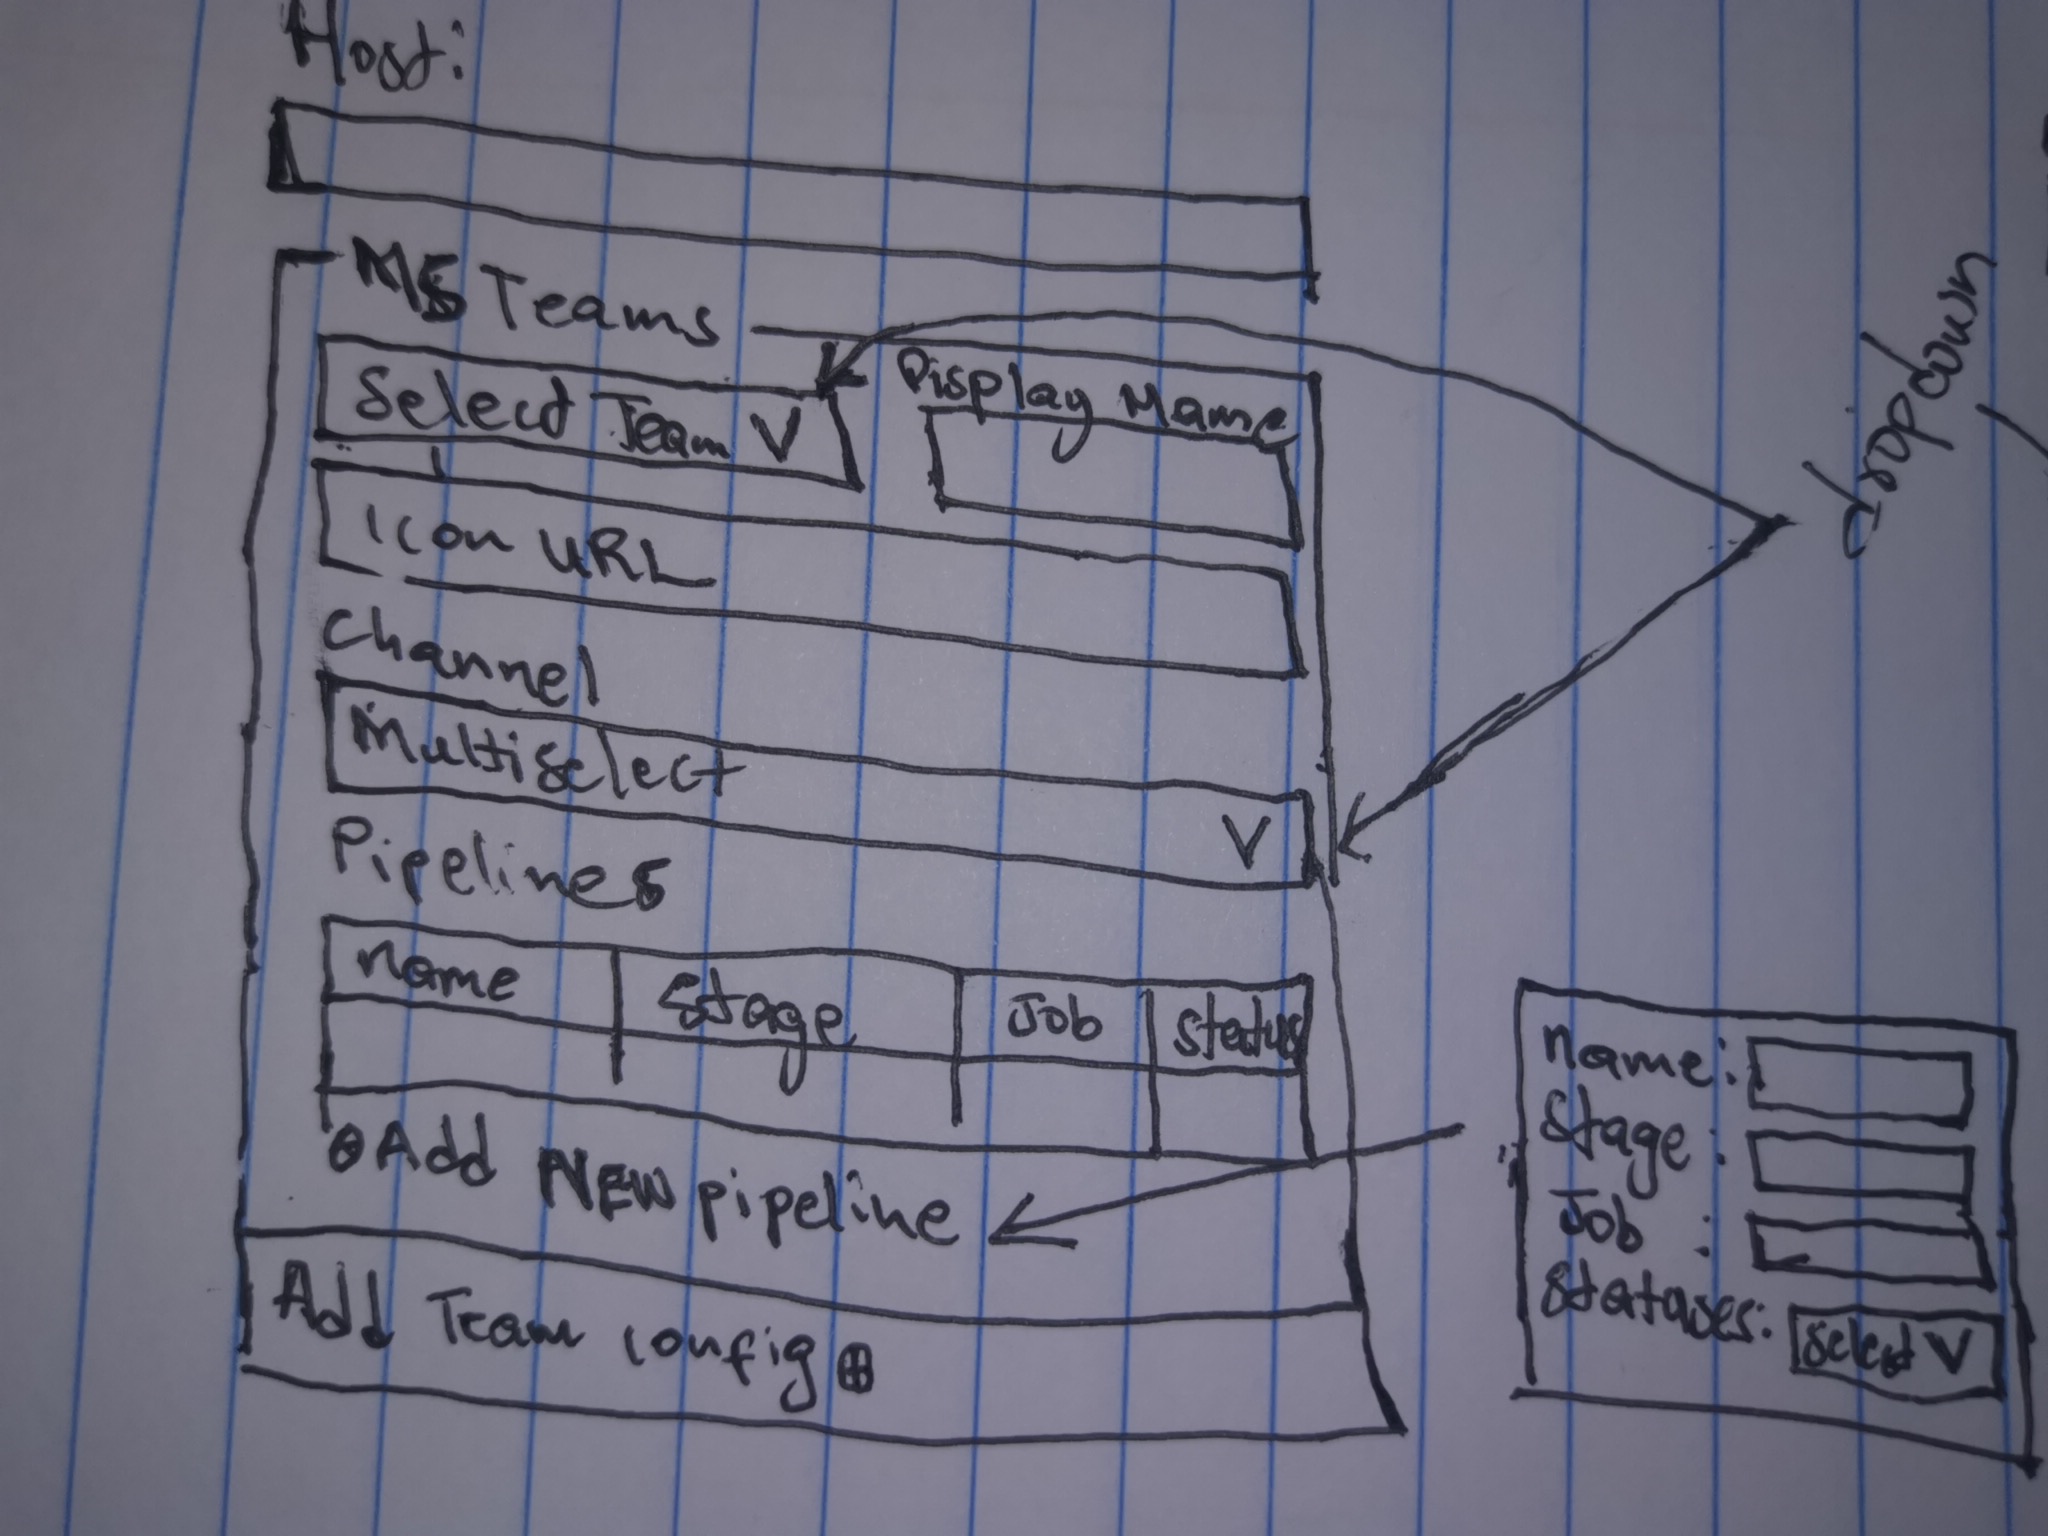 Host:
MS Teams
Select Team V
Display Name
Icon URL
Channel
Multiselect V
Pipelines
Name Stage Job Status
⊕ Add NEW pipeline
Add Team config ⊕
dropdown
Name:
Stage :
Job :
Statuses: Select V